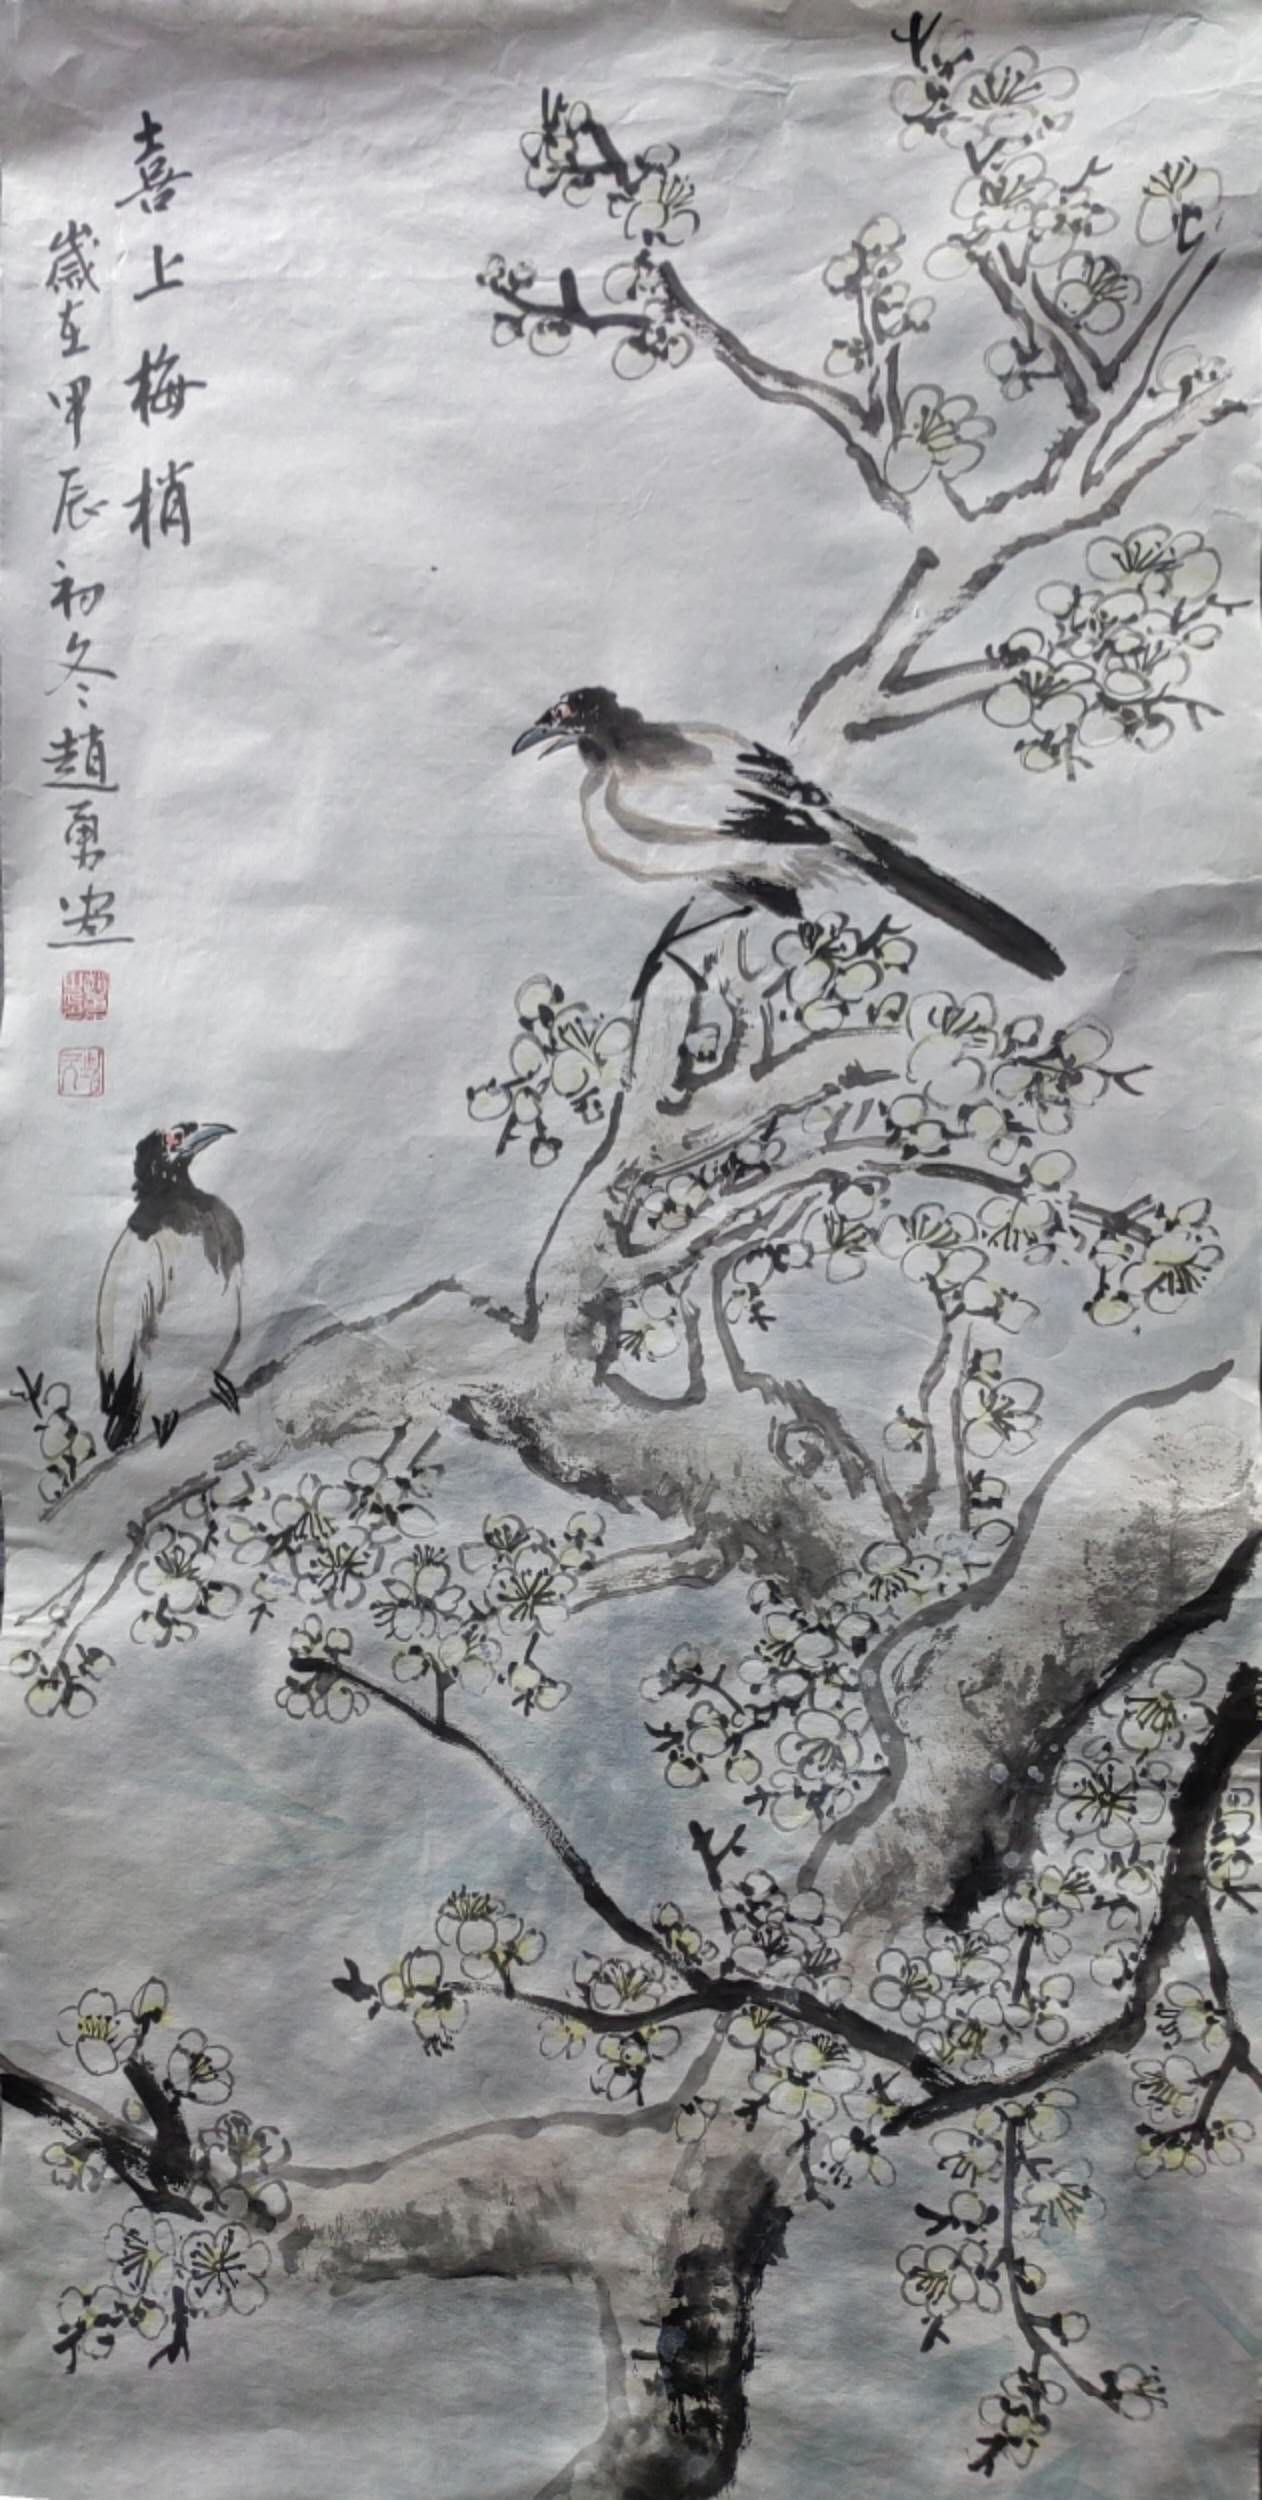 喜上梅梢
歲在甲辰初冬趙勇畫